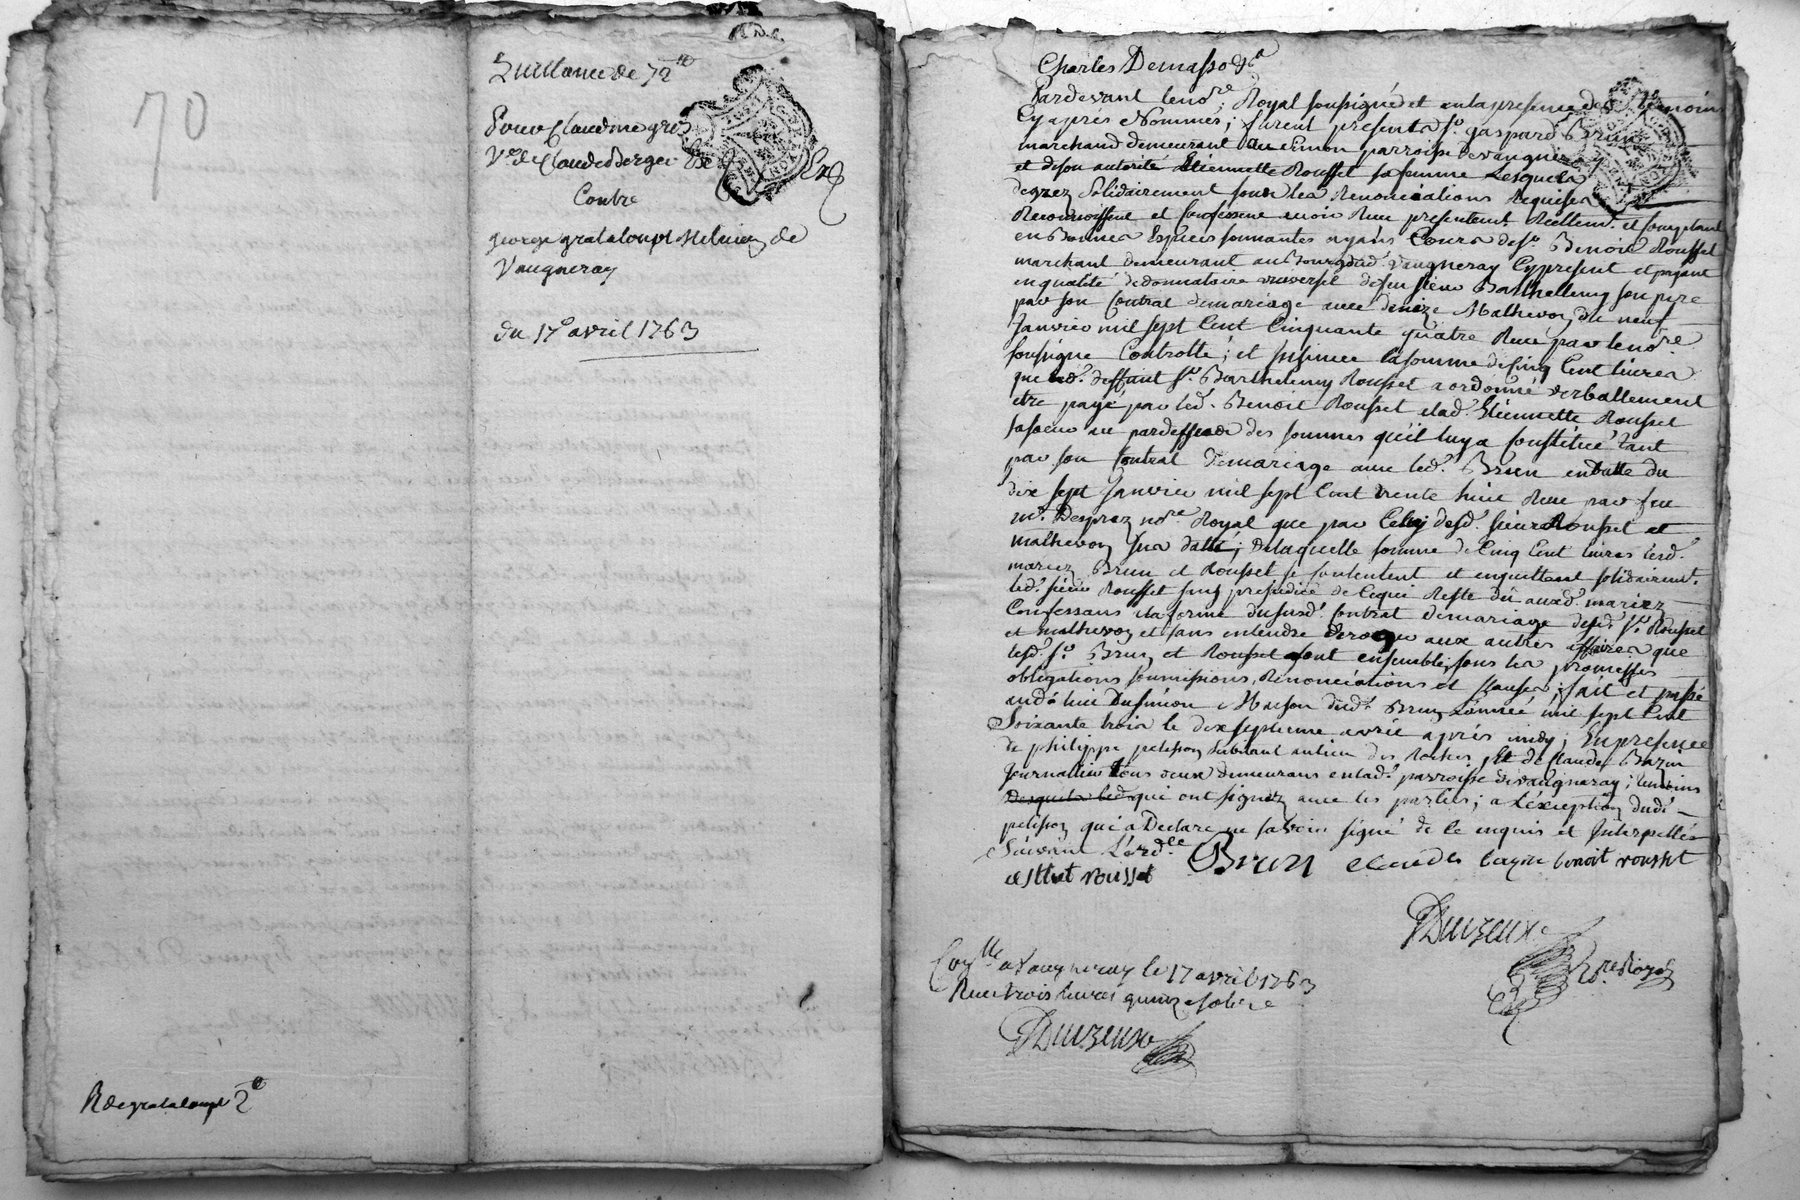 70
Quittance de 72tt
Pour Claudine gros
Ve. de Claude Berger
Contre
george grataloup
de
Vaugneray
du 17e avril 1763
R de grataloup 2e
Charles Demasso &a
Pardevant le nore. Royal soussigné et en la presence des temoins
Cy apres Nommés; furent presents sr. gaspard Brun
marchand demeurant au Simon parroisse de vaugneray
et de son autorité Etiennette Rousset sa femme Lesquels
de grez Solidairement sous les Renonciations Requises
Reconnoissent et Confessent avoir Reçu presentement Reellemt. et Comptant
en Bonnes Especes sonnantes ayant Cours de sr. Benoit Rousset
marchant demeurant au Bourg dud. Vaugneray Cy present et payant
en qualité de donnataire universel de feu sieur Barthellemy son pere
par son Contrat de mariage avec denize Mathevon du neuf
Janvier mil sept Cent Cinquante quatre Reçu par le nore.
soussigné Controllé; et insinué la somme de Cinq Cent livres
que led. deffunt sr. Barthelemy Rousset a ordonné verballement
etre payé par led. Benoit Rousset a lad. Etiennette Rousset
sa soeur au pardessus des sommes qu'il luy a Constitué tant
par son Contrat de mariage avec led. Brun en datte du
dix sept Janvier mil sept Cent trente huit Reçu par feu
me. Desprez nore. Royal que par Celuy desd. sieur Rousset et
mathevon sus datté; De laquelle somme de Cinq Cent livres lesd.
mariez Brun et Rousset se Contentent et en quittent solidairemt.
led. sieur Rousset sans prejudice de Ce qui Reste dû auxd. mariez
Confessans a la forme du susd. Contrat de mariage desd. sr. Rousset
et mathevon et sans entendre deroger aux autres affaires que
lesd. sr. Brun et Rousset ont ensemble, sous les promesses
obligations soumissions, Renonciations et Clauses; fait et passé
aud. lieu Du simon Maison dud. Brun L'année mil sept Cent
Soixante trois le dix septieme avril après midy; En presence
de philippe pelisson habitant au lieu des Roches, Et de Claude Bazin
Journallier tous deux demeurans en lad. parroisse de vaugneray; temoins
qui ont signez avec les parties; a L'exception dud.
pelisson qui a Declaré ne savoir signé de ce enquis et Interpellés
Suivant L'ord.ce
Brun
benoit rousset
rousset
Duizeux
nre Royal
Conlle. a Vaugneray le 17 avril 1763
Reçu trois livres quinze sols
Duizeux